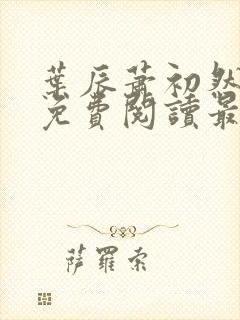 葉辰蕭初然
免費閱讀最
萨羅索